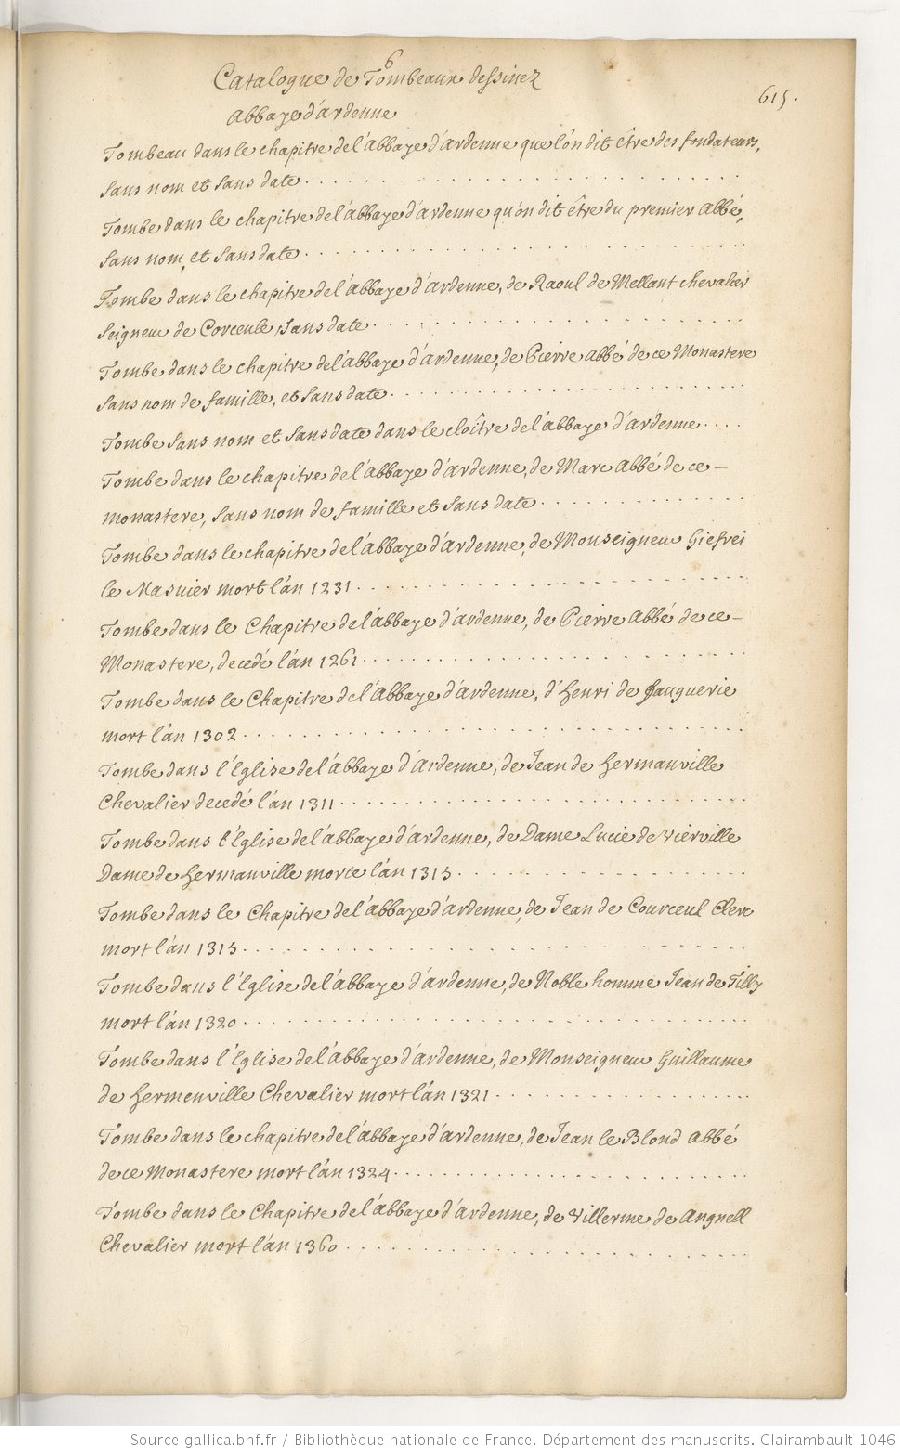 6
Catalogue de Tombeaux dessinez
615.
Abbaye d'ardenne
Tombeau dans le chapitre de l'abbaye d'ardenne que l'on dit être des fondateurs,
sans nom et sans date
Tombe dans le chapitre de l'abbaye d'ardenne qu'on dit être du premier Abbé,
sans nom, et sans date
Tombe dans le chapitre de l'abbaye d'ardenne, de Raoul de Mellant chevalier
Seigneur de Corceule, sans date
Tombe dans le chapitre de l'abbaye d'ardenne, de Pierre Abbé de ce Monastere
sans nom de famille, et sans date
Tombe sans nom et sans date dans le cloître de l'abbaye d'ardenne
Tombe dans le chapitre de l'abbaye d'ardenne, de Marc Abbé de ce
monastere, sans nom de famille et sans date
Tombe dans le chapitre de l'abbaye d'ardenne, de Monseigneur Giefrei
le Masnier mort l'an 1231
Tombe dans le Chapitre de l'abbaye d'ardenne, de Pierre Abbé de ce
Monastere, decedé l'an 1261
Tombe dans le Chapitre de l'Abbaye d'ardenne, d'henri de fauguerie
mort l'an 1302
Tombe dans l'Eglise de l'abbaye d'ardenne, de Jean de hermanville
Chevalier decedé l'an 1311
Tombe dans l'Eglise de l'abbaye d'ardenne, de Dame Lucie de vierville
Dame de hermanville morte l'an 1315
Tombe dans le Chapitre de l'abbaye d'ardenne, de Jean de Courceul Clerc
mort l'an 1315
Tombe dans l'Eglise de l'abbaye d'ardenne, de Noble homme Jean de Tilly
mort l'an 1320
Tombe dans l'Eglise de l'Abbaye d'ardenne, de Monseigneur Guillaume
de hermenville Chevalier mort l'an 1321
Tombe dans le chapitre de l'abbaye d'ardenne, de Jean le Blond abbé
de ce Monastere mort l'an 1324
Tombe dans le Chapitre de l'abbaye d'ardenne, de Villerme de Angnell
Chevalier mort l'an 1360
Source gallica.bnf.fr / Bibliothèque nationale de France. Département des manuscrits. Clairambault 1046